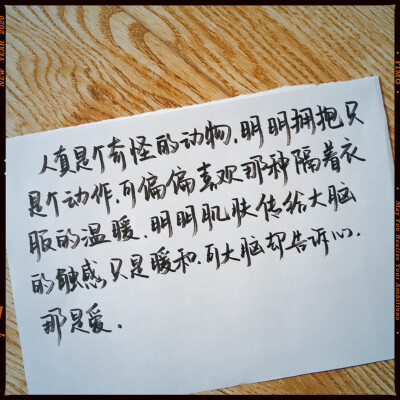 人真是个奇怪的动物，明明拥抱只
是个动作，可偏偏喜欢那种隔着衣
服的温暖，明明肌肤传给大脑
的触感，只是暖和，可大脑却告诉心，
那是爱。
NEW YEAR 2020